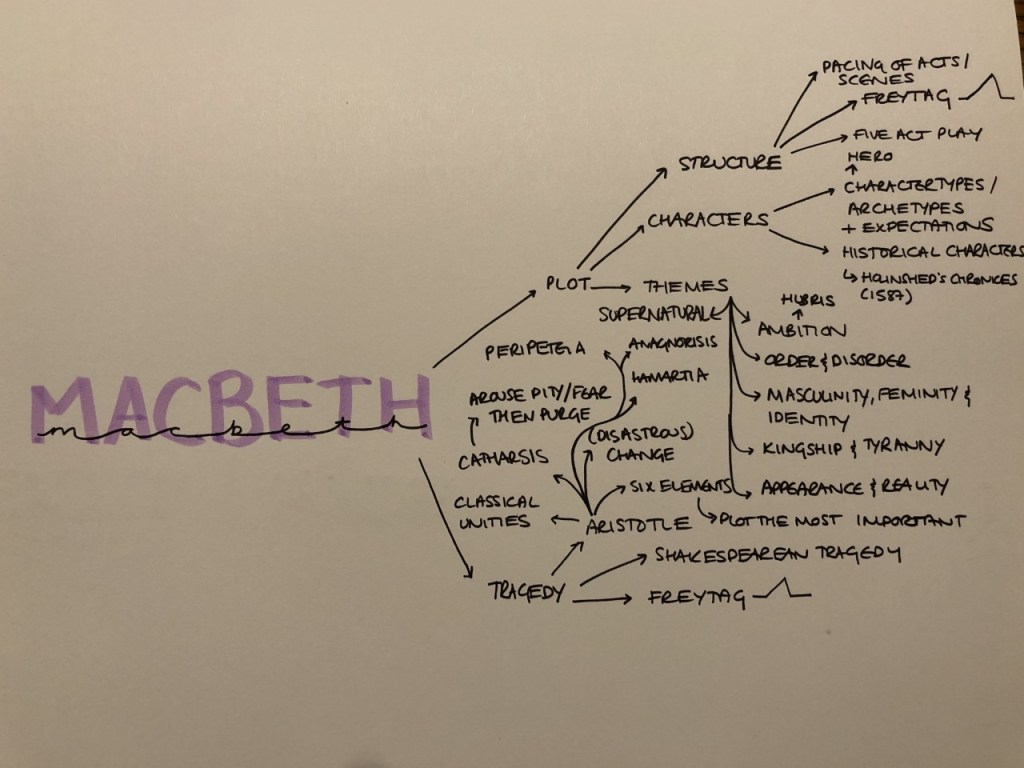 MACBETH
macbeth
PLOT
STRUCTURE
PACING OF ACTS/
SCENES
FREYTAG
FIVE ACT PLAY
CHARACTERS
HERO
CHARACTERTYPES/
ARCHETYPES
+ EXPECTATIONS
HISTORICAL CHARACTERS
HOLINSHED'S CHRONICES
(1587)
THEMES
SUPERNATURAL
HUBRIS
AMBITION
ORDER & DISORDER
MASCULINITY, FEMINITY &
IDENTITY
KINGSHIP & TYRANNY
APPEARANCE & REALITY
TRAGEDY
ARISTOTLE
CLASSICAL
UNITIES
CATHARSIS
AROUSE PITY/FEAR
THEN PURGE
PERIPETEIA
ANAGNORISIS
HAMARTIA
(DISASTROUS)
CHANGE
SIX ELEMENTS
PLOT THE MOST IMPORTANT
SHAKESPEAREAN TRAGEDY
FREYTAG